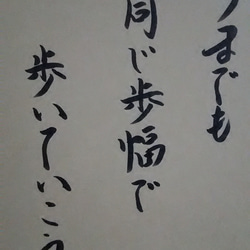 までも
同じ歩幅で
歩いていこう